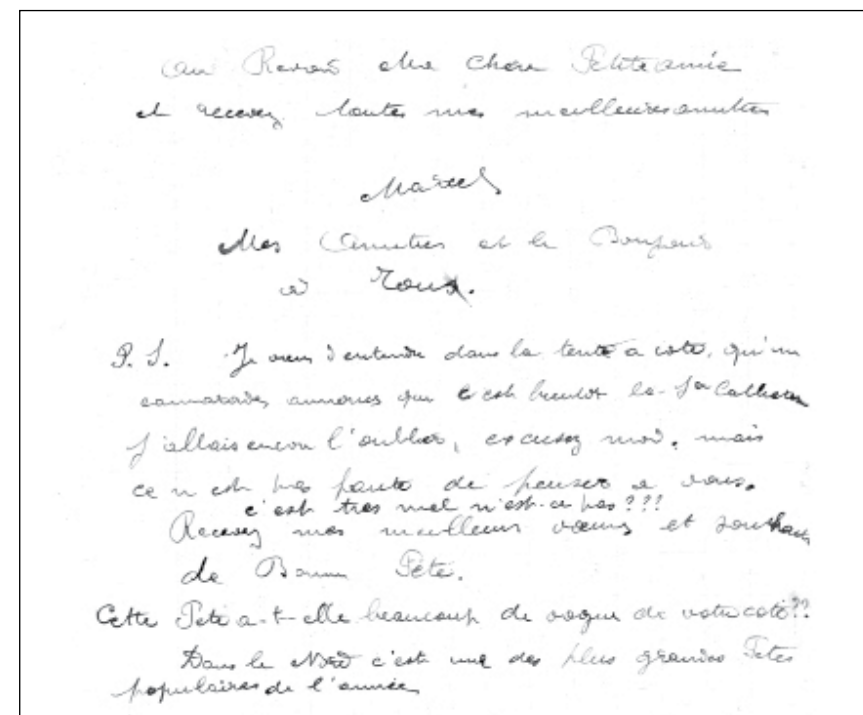 Au Revoir Ma Chere Petite amie
et recevez toutes mes meilleures amities
Marcel
Mes Amities et le Bonjour
à Tous.
P.S. Je viens d'entendre dans la tente a coté, qu'un
camarades annonces que c'est bientot la Ste Catherine
J'allais encore l'oublier, excusez moi. mais
ce n'est pas faute de penser a vous.
c'est tres mal n'est-ce pas ???
Recevez mes meilleurs vœux et souhaits
de Bonne Fête.
Cette Fete a-t-elle beaucoup de vogue de votre coté ??
Dans le Nord c'est une des plus grandes Fetes
populaires de l'année